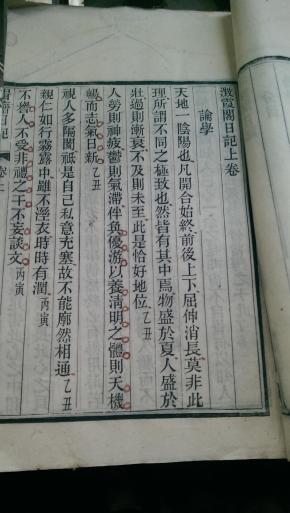 渡霞閣日記上卷
論學
天地一陰陽也凡開合始終前後上下屈伸消長莫非此
理所謂不同之極致也然皆有其中焉物盛於夏人盛於
壯過則漸衰不及則未至此是恰好地位乙丑
人勞則神疲鬱則氣滯伴奐優游以養清明之體則天機
暢而志氣日新乙丑
視人多隔閡祗是自己私意充塞故不能廓然相通乙丑
親仁如行霧露中雖不溼衣時時有潤丙寅
不礬人不受非禮之干不妄談文丙寅
日記 卷上